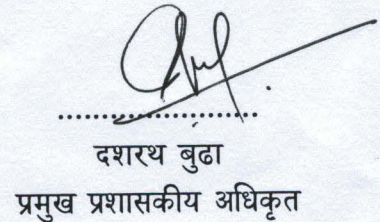 ........................
दशरथ बुढा
प्रमुख प्रशासकीय अधिकृत